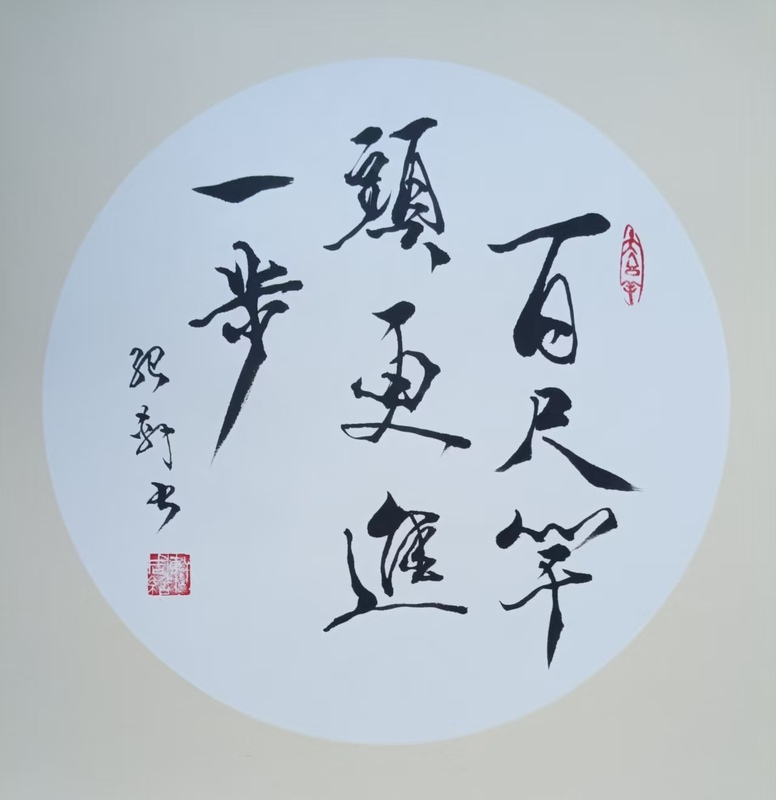 百尺竿
頭更進
一步